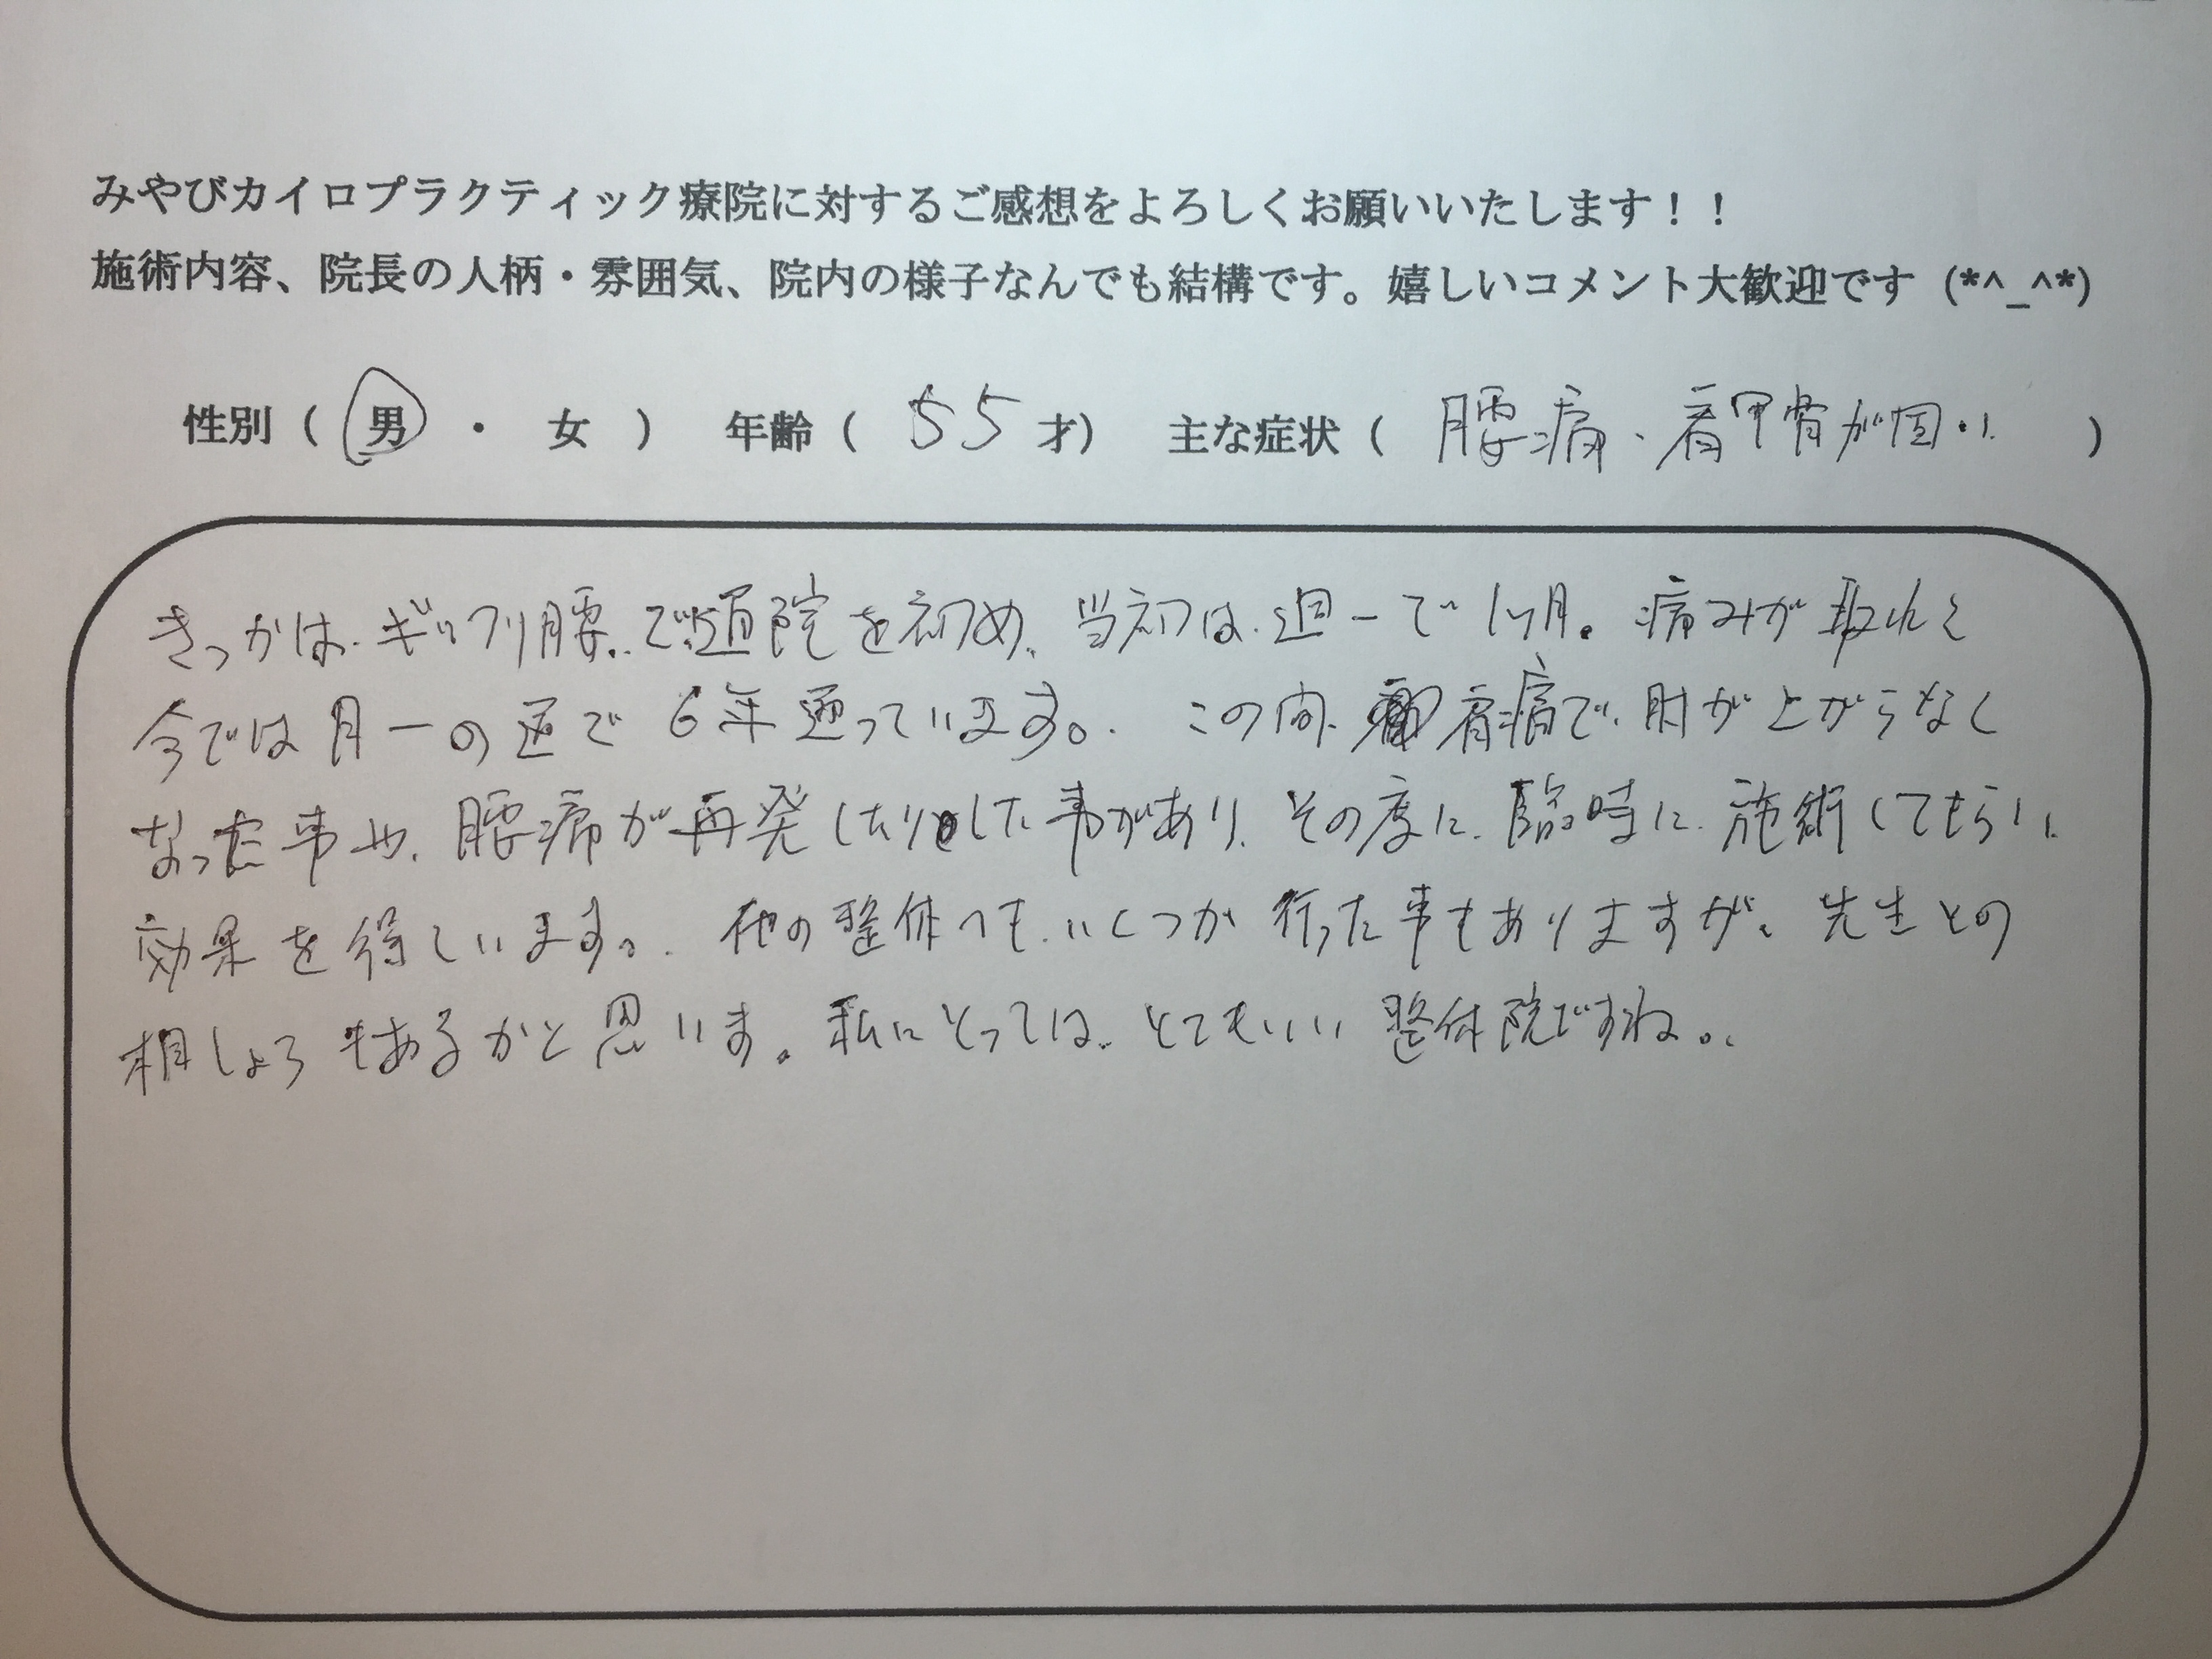 みやびカイロプラクティック療院に対するご感想をよろしくお願いいたします！！
施術内容、院長の人柄・雰囲気、院内の様子なんでも結構です。嬉しいコメント大歓迎です (*^_^*)
性別（ 男 ・ 女 ） 年齢（ 55 才） 主な症状（ 腰痛・肩甲骨が固い ）
きっかは、ギックリ腰。で通院を初め、当初は、週一で1ヶ月。痛みが取れて
今では月一の
で6年通っています。この間、肩痛で、肘が上がらなく
なった事や、腰痛が再発したりした事があり、その度に、臨時に、施術してもらい、
効果を得ています。他の整体へも、いくつか行った事もありますが、先生との
相しょうもあるかと思います。私にとっては、とてもいい整体院ですね。